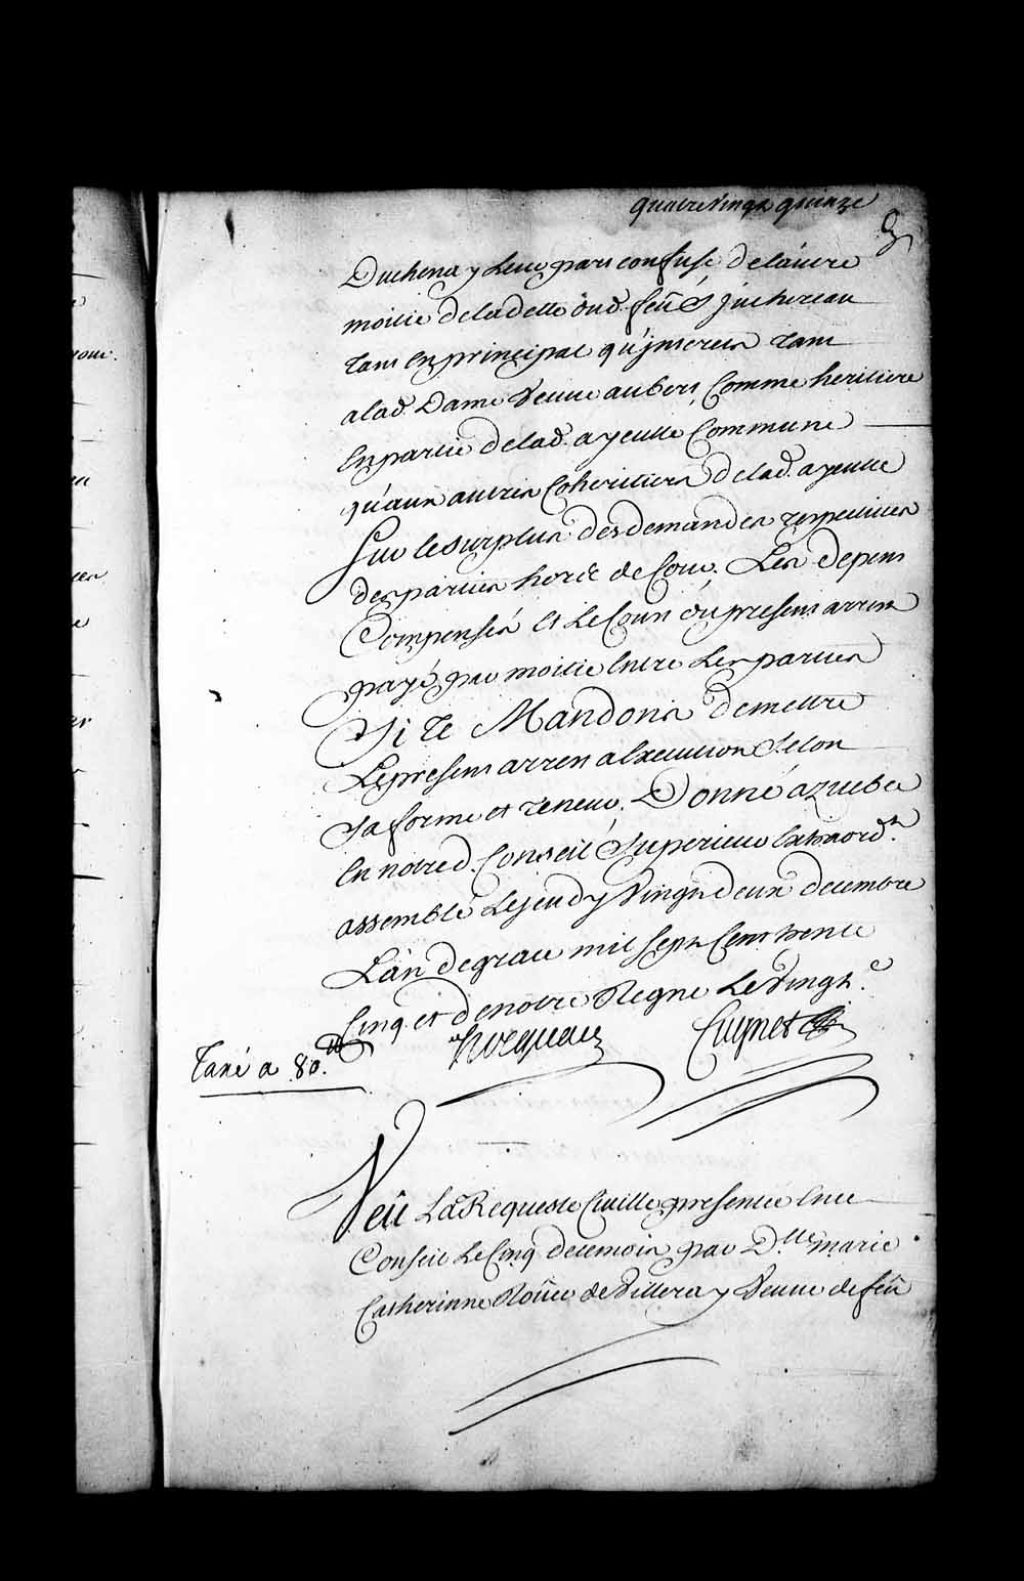 quatre vingt quinze
Duchenay Leur part confuse de l'autre
moitié de la dette dud. feu S. juchereau
tant En principal qu'jnterets tant
a lad. Dame Veuve aubert Comme heritiere
En partie de lad. ayeulle Commune
qu'aux autres Coheritiers de lad. ayeulle
Sur le surplus des demandes respectives
des parties hors de Cour. Les depens
Compensés Et Le Cout du present arrest
payé par moitié Entre Les parties
Si te Mandons de mettre
Le present arrest a Execution Selon
Sa forme et teneur. Donné a quebec
En notred. Conseil Superieur Extraord.re
assemblé Le jeudy Vingt deux decembre
L'an de grace mil Sept Cent trente
Cinq et de notre Regne Le Vingt.e
hocquart Cugnet
Taxé a 80.tt
Veu La Requeste Civille presentée En ce
Conseil Le Cinq de ce mois par D.lle marie
Catherinne Roüer de Villeray Veuve de feu